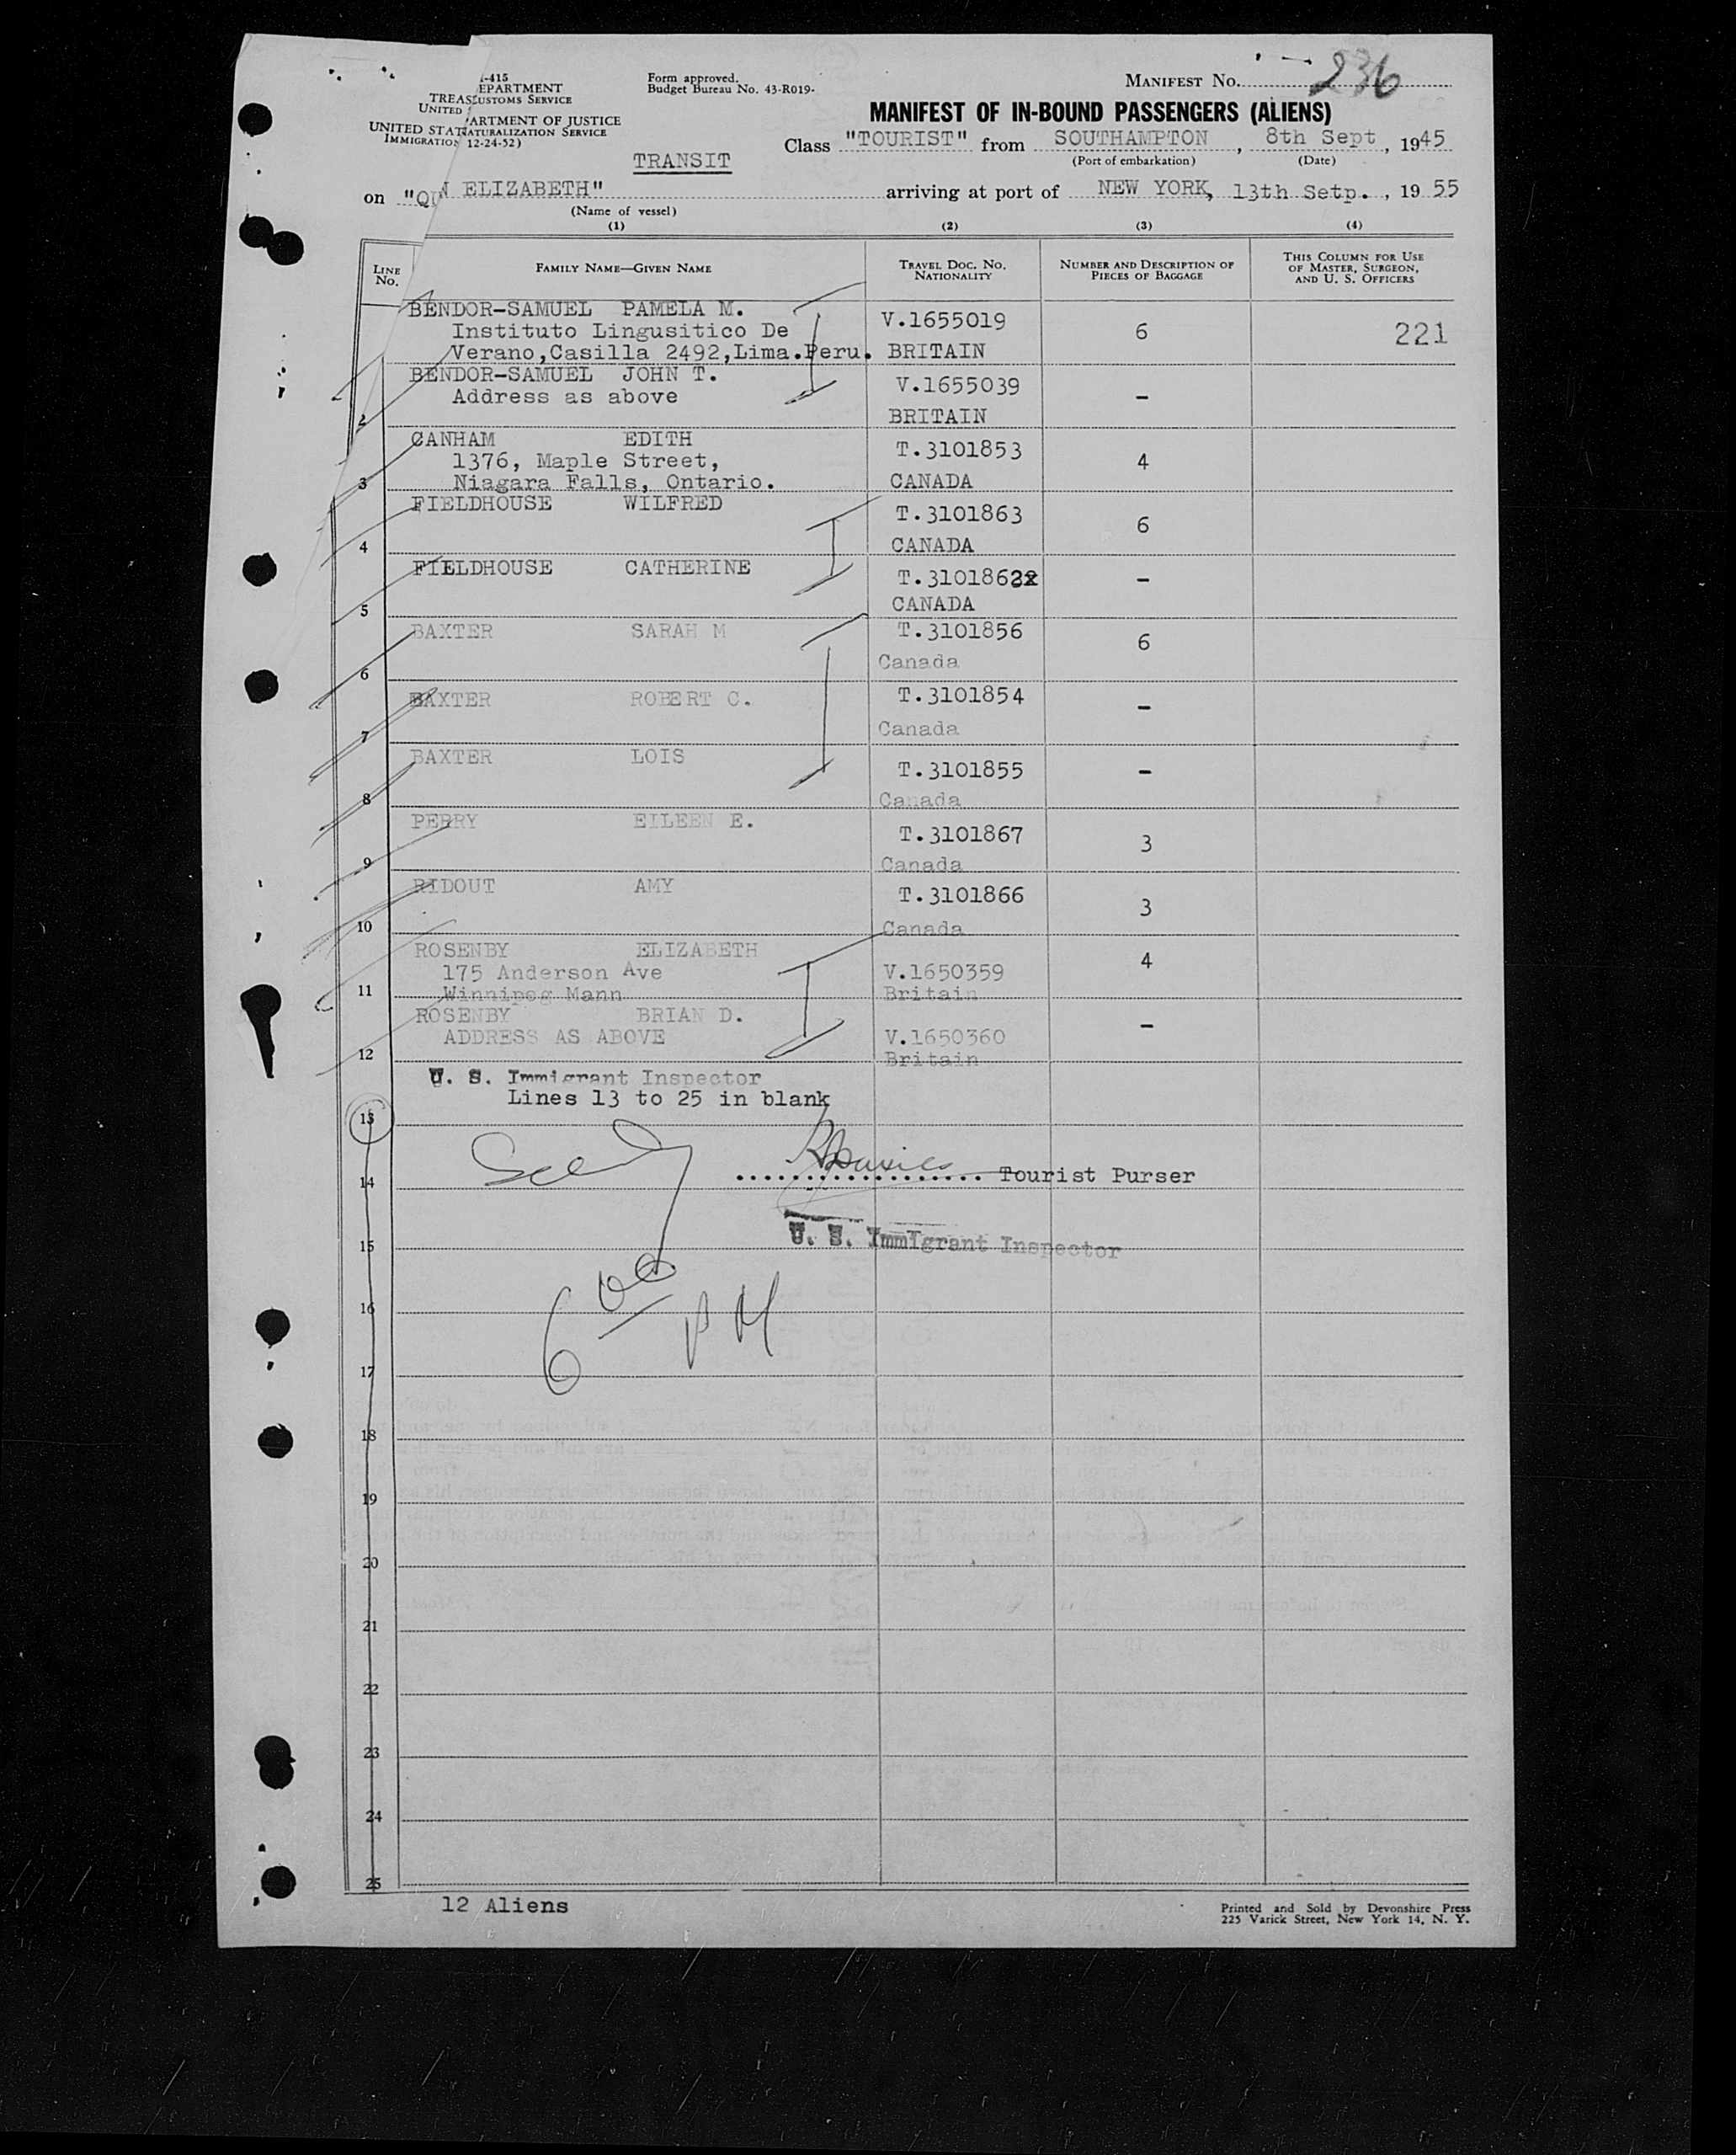 -415
EPARTMENT
TREAS CUSTOMS SERVICE
UNITED
ARTMENT OF JUSTICE
UNITED STAT NATURALIZATION SERVICE
IMMIGRATION 12-24-52)
Form approved.
Budget Bureau No. 43-R019-
MANIFEST No. 236
MANIFEST OF IN-BOUND PASSENGERS (ALIENS)
Class "TOURIST" from SOUTHAMPTON, 8th Sept, 1945
(Port of embarkation) (Date)
TRANSIT
on "QU N ELIZABETH" arriving at port of NEW YORK, 13th Setp., 1955
(Name of vessel)
(1) (2) (3) (4)
LINE No. FAMILY NAME—GIVEN NAME TRAVEL DOC. NO. NATIONALITY NUMBER AND DESCRIPTION OF PIECES OF BAGGAGE THIS COLUMN FOR USE OF MASTER, SURGEON, AND U. S. OFFICERS
BENDOR-SAMUEL PAMELA M.
Instituto Lingusitico De V.1655019 6 221
Verano,Casilla 2492,Lima.Peru. BRITAIN
BENDOR-SAMUEL JOHN T.
Address as above V.1655039 -
2 BRITAIN
CANHAM EDITH
1376, Maple Street, T.3101853 4
3 Niagara Falls, Ontario. CANADA
FIELDHOUSE WILFRED T.3101863 6
4 CANADA
FIELDHOUSE CATHERINE T.3101862x -
5 CANADA
BAXTER SARAH M T.3101856 6
6 Canada
BAXTER ROBERT C. T.3101854 -
7 Canada
BAXTER LOIS T.3101855 -
8 Canada
PERRY EILEEN E. T.3101867 3
9 Canada
RIDOUT AMY T.3101866 3
10 Canada
ROSENBY ELIZABETH 4
175 Anderson Ave V.1650359
11 Winnipeg Mann Britain
ROSENBY BRIAN D. -
ADDRESS AS ABOVE V.1650360
12 Britain
U. S. Immigrant Inspector
Lines 13 to 25 in blank
13
14 Tourist Purser
U. S. Immigrant Inspector
15
6 00 PM
16
17
18
19
20
21
22
23
24
25
12 Aliens
Printed and Sold by Devonshire Press
225 Varick Street, New York 14, N. Y.